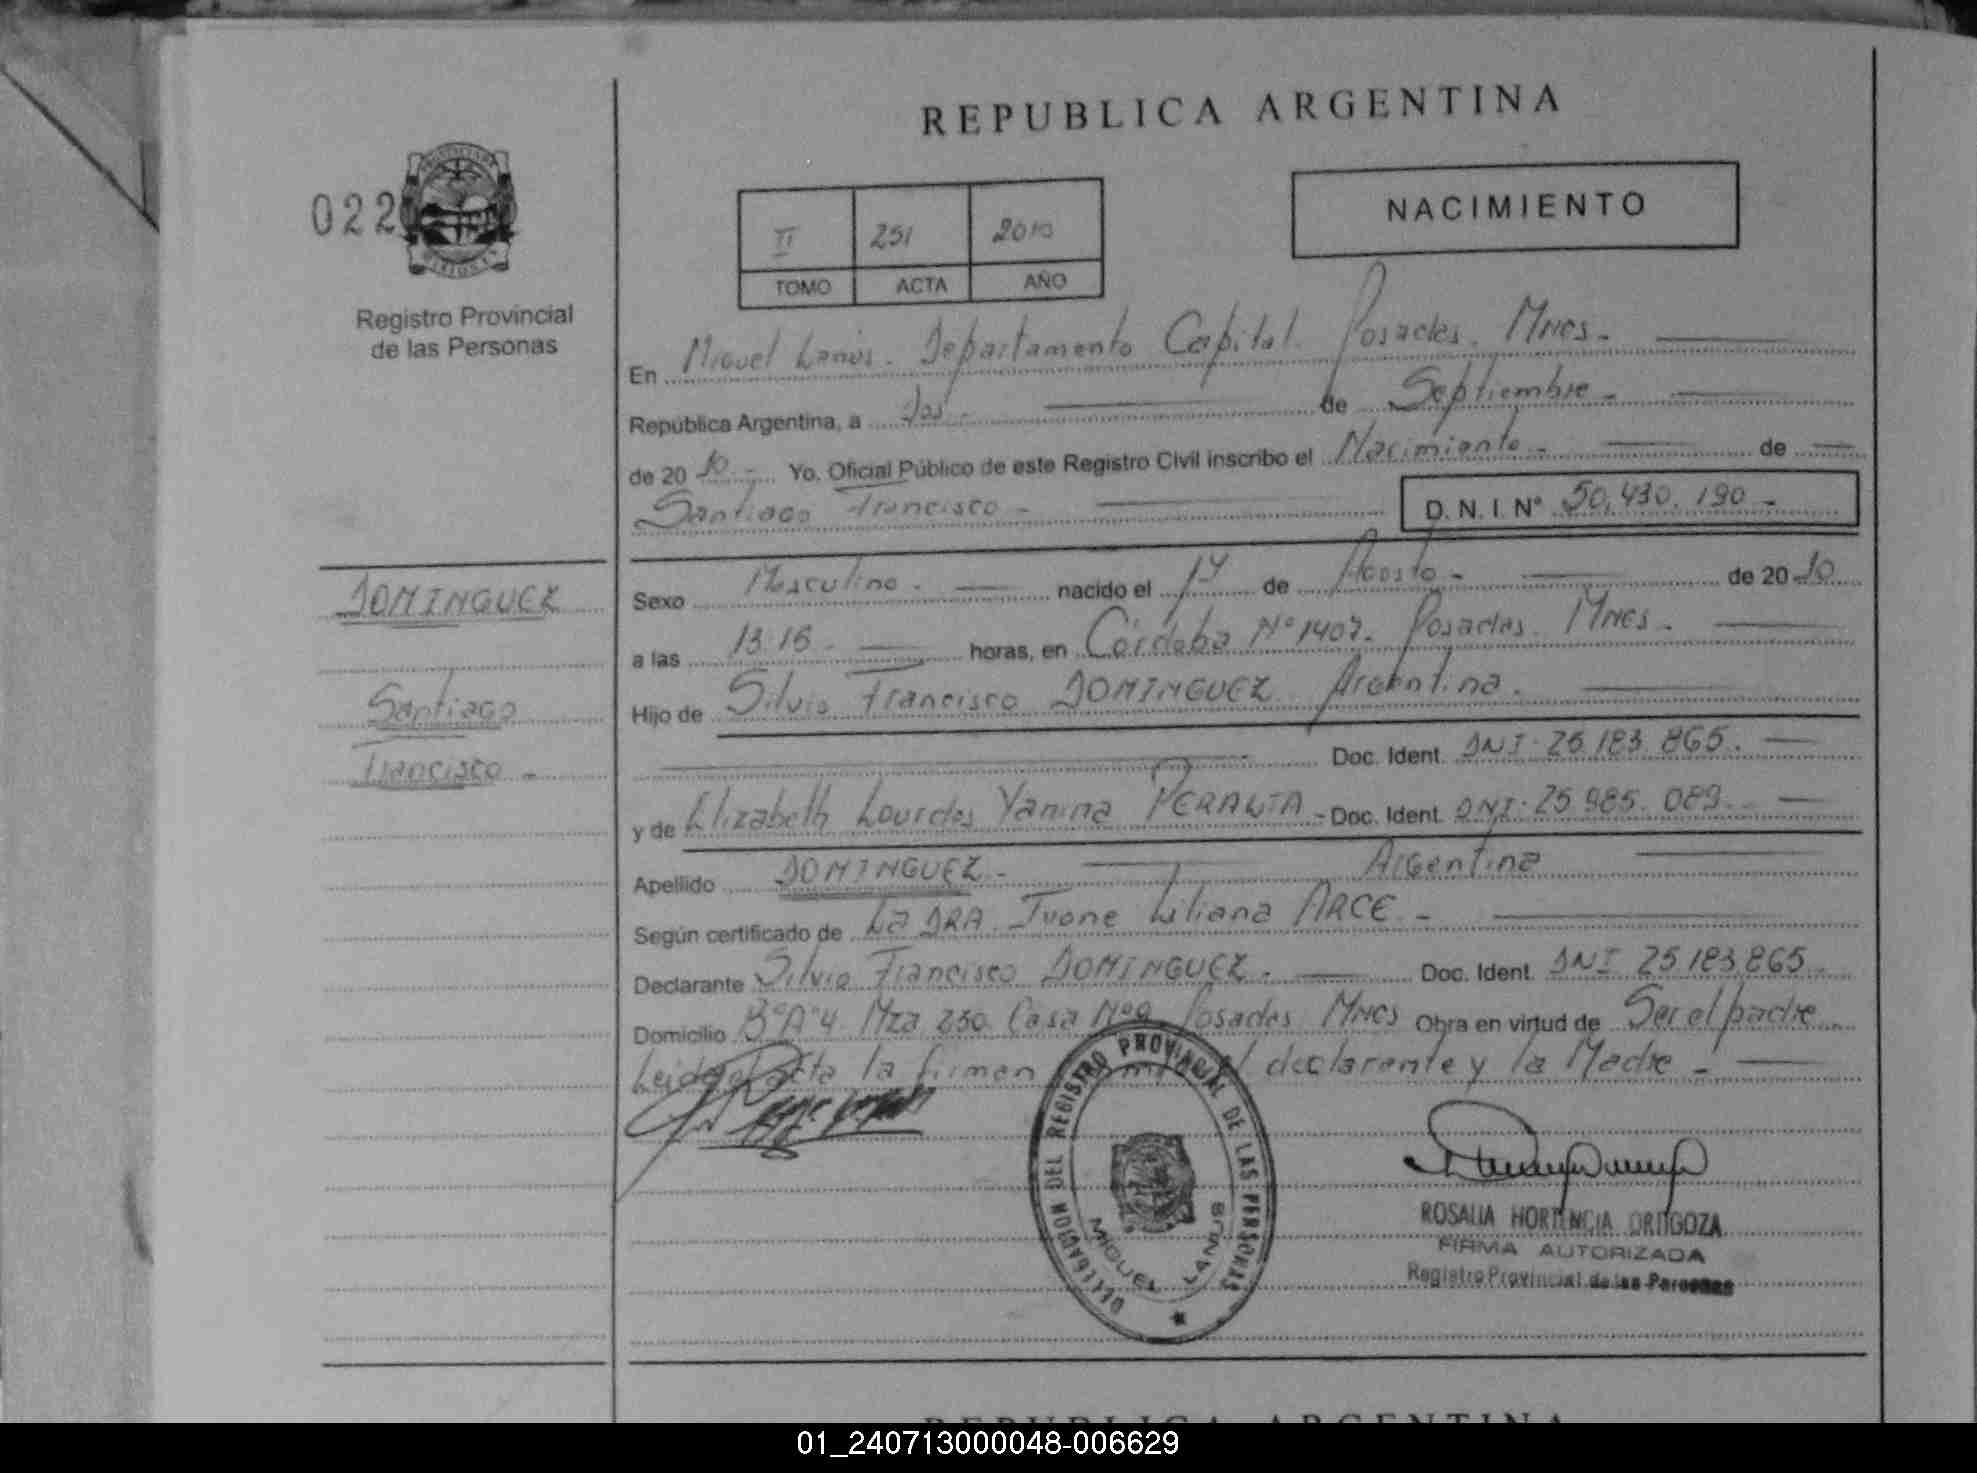 REPUBLICA ARGENTINA
022
Registro Provincial
de las Personas
NACIMIENTO
II 251 2010
TOMO ACTA AÑO
En Miguel Lanús. Departamento Capital. Posadas. Mnes.
República Argentina, a dos.- de Septiembre.-
de 2010.- Yo, Oficial Público de este Registro Civil inscribo el Nacimiento.- de
Santiago Francisco.- D. N. I. N° 50.430.190.-
DOMINGUEZ
Santiago
Francisco.-
Sexo Masculino.- nacido el de Agosto.- de 2010
a las horas, en Córdoba N° 1407. Posadas. Mnes.-
Hijo de Silvio Francisco DOMINGUEZ Argentina.
Doc. Ident. DNI. 25.183.865.
y de Elizabeth Lourdes Yanina PERALTA.- Doc. Ident. DNI. 25.985.089.
Apellido DOMINGUEZ.- Argentina
Según certificado de La DRA. Ivone Liliana ARCE.-
Declarante Silvio Francisco DOMINGUEZ.- Doc. Ident. DNI 25.183.865
Domicilio B° "A" 4 Mza 250 Casa N° 9 Posadas Mnes Obra en virtud de Ser el padre
Leida el Acta la firman declarante y la Madre.-
DELEGACION DEL REGISTRO PROVINCIAL DE LAS PERSONAS
MIGUEL LANUS
ROSALIA HORTENCIA ORTIGOZA
FIRMA AUTORIZADA
Registro Provincial de las Personas
REPUBLICA ARGENTINA
01_240713000048-006629